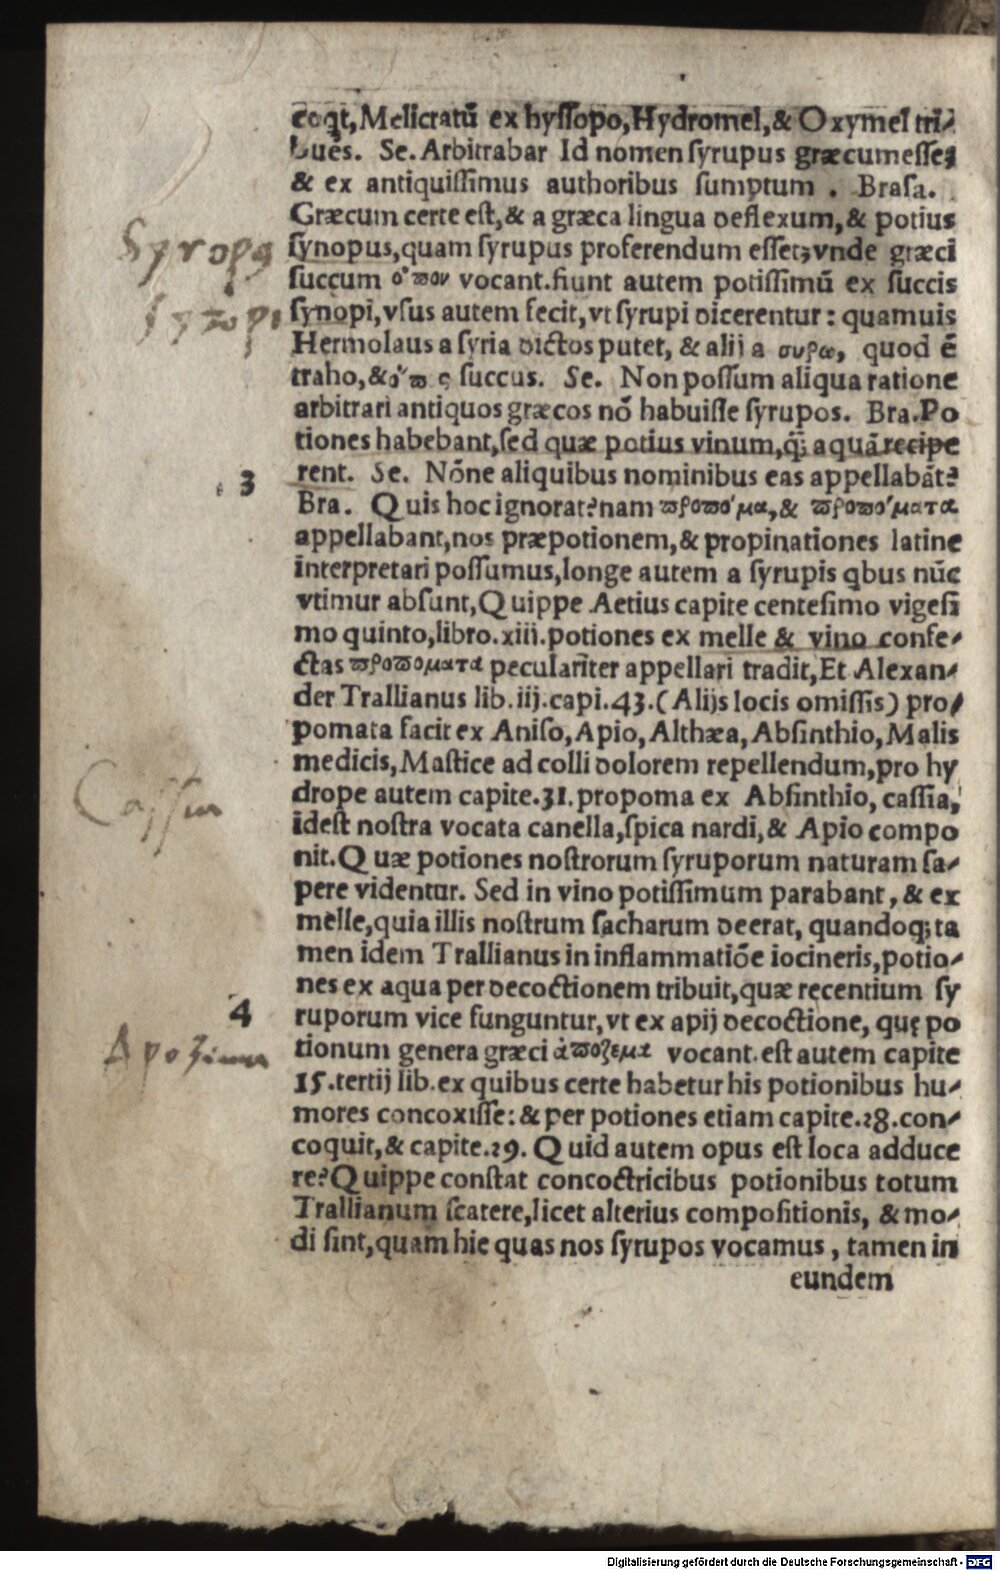 coqt, Melicratũ ex hyſſopo, Hydromel, & Oxymel tri-
bues. Se. Arbitrabar Id nomen ſyrupus græcum eſſe,
& ex antiquiſſimus authoribus ſumptum. Braſa.
Græcum certe eſt, & a græca lingua deflexum, & potius
Syropꝰ
ſynopus, quam ſyrupus proferendum eſſet, vnde græci
ſuccum ὀ ϖον vocant. fiunt autem potiſſimũ ex ſuccis
ſynopi, vſus autem fecit, vt ſyrupi dicerentur: quamuis
Hermolaus a ſyria dictos putet, & alij a συρω, quod ẽ
traho, & ὀ ϖ ς ſuccus. Se. Non poſſum aliqua ratione
arbitrari antiquos græcos nõ habuiſſe ſyrupos. Bra. Po
tiones habebant, ſed quæ potius vinum, q̃; aquã recipe
3
rent. Se. Nõne aliquibus nominibus eas appellabãt?
Bra. Quis hoc ignorat? nam ϖροϖόμα, & ϖροϖόματα
appellabant, nos præpotionem, & propinationes latine
interpretari poſſumus, longe autem a ſyrupis qbus nũc
vtimur abſunt, Quippe Aetius capite centeſimo vigeſi
mo quinto, libro. xiii. potiones ex melle & vino confe-
ctas ϖροϖοματα peculariter appellari tradit, Et Alexan-
der Trallianus lib. iij. capi. 43. (Alijs locis omiſſis) pro-
pomata facit ex Aniſo, Apio, Althæa, Abſinthio, Malis
medicis, Maſtice ad colli dolorem repellendum, pro hy
Caſſia
drope autem capite. 31. propoma ex Abſinthio, caſſia,
ideſt noſtra vocata canella, ſpica nardi, & Apio compo
nit. Quæ potiones noſtrorum ſyruporum naturam ſa-
pere videntur. Sed in vino potiſſimum parabant, & ex
melle, quia illis noſtrum ſacharum deerat, quandoq; ta
men idem Trallianus in inflammatiõe iocineris, potio-
nes ex aqua per decoctionem tribuit, quæ recentium ſy
4
ruporum vice funguntur, vt ex apij decoctione, quę po
Apozima
tionum genera græci ἀϖοζεμα vocant. eſt autem capite
15. tertij lib. ex quibus certe habetur his potionibus hu-
mores concoxiſſe: & per potiones etiam capite. 28. con-
coquit, & capite. 29. Quid autem opus eſt loca adduce
re? Quippe conſtat concoctricibus potionibus totum
Trallianum ſcatere, licet alterius compoſitionis, & mo-
di ſint, quam hie quas nos ſyrupos vocamus, tamen in
eundem
Digitalisierung gefördert durch die Deutsche Forschungsgemeinschaft - DFG